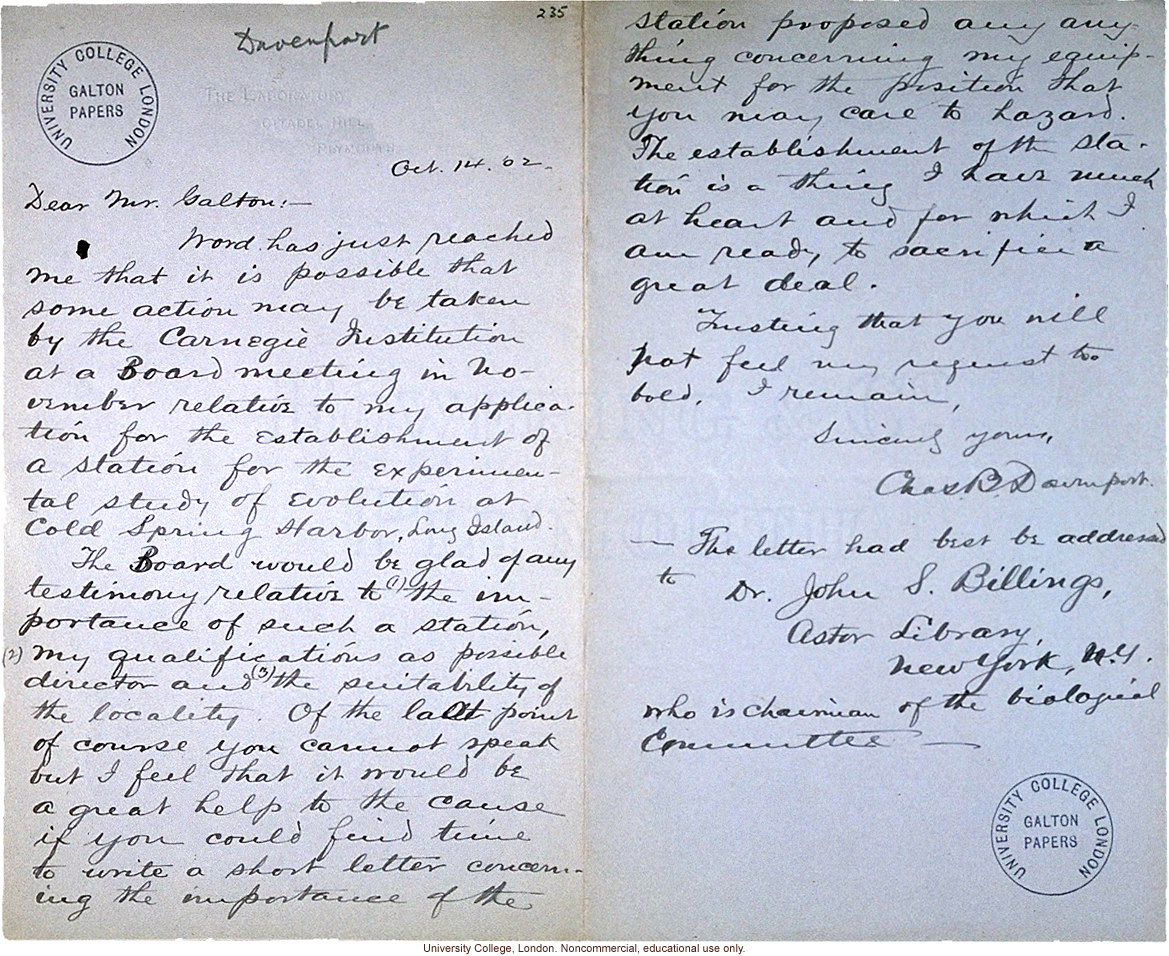 235
Davenport
UNIVERSITY COLLEGE LONDON
GALTON
PAPERS
THE LABORATORY,
CITADEL HILL,
PLYMOUTH.
Oct. 14. '02.
Dear Mr. Galton:—
Word has just reached
me that it is possible that
some action may be taken
by the Carnegie Institution
at a Board meeting in No-
vember relative to my applica-
tion for the establishment of
a station for the experimen-
tal study of evolution at
Cold Spring Harbor, Long Island.
The Board would be glad of any
testimony relative to (1) the im-
portance of such a station,
(2) my qualifications as possible
director and (3) the suitability of
the locality. Of the last point
of course you cannot speak
but I feel that it would be
a great help to the cause
if you could find time
to write a short letter concern-
ing the importance of the
station proposed any any-
thing concerning my equip-
ment for the position that
you may care to hazard.
The establishment of the sta-
tion is a thing I have much
at heart and for which I
am ready to sacrifice a
great deal.
Trusting that you will
not feel my request too
bold, I remain,
Sincerely yours,
Chas B. Davenport.
— The letter had best be addressed
to Dr. John S. Billings,
Astor Library,
New York, N.Y.
who is chairman of the biological
Committee —
UNIVERSITY COLLEGE LONDON
GALTON
PAPERS
University College, London. Noncommercial, educational use only.